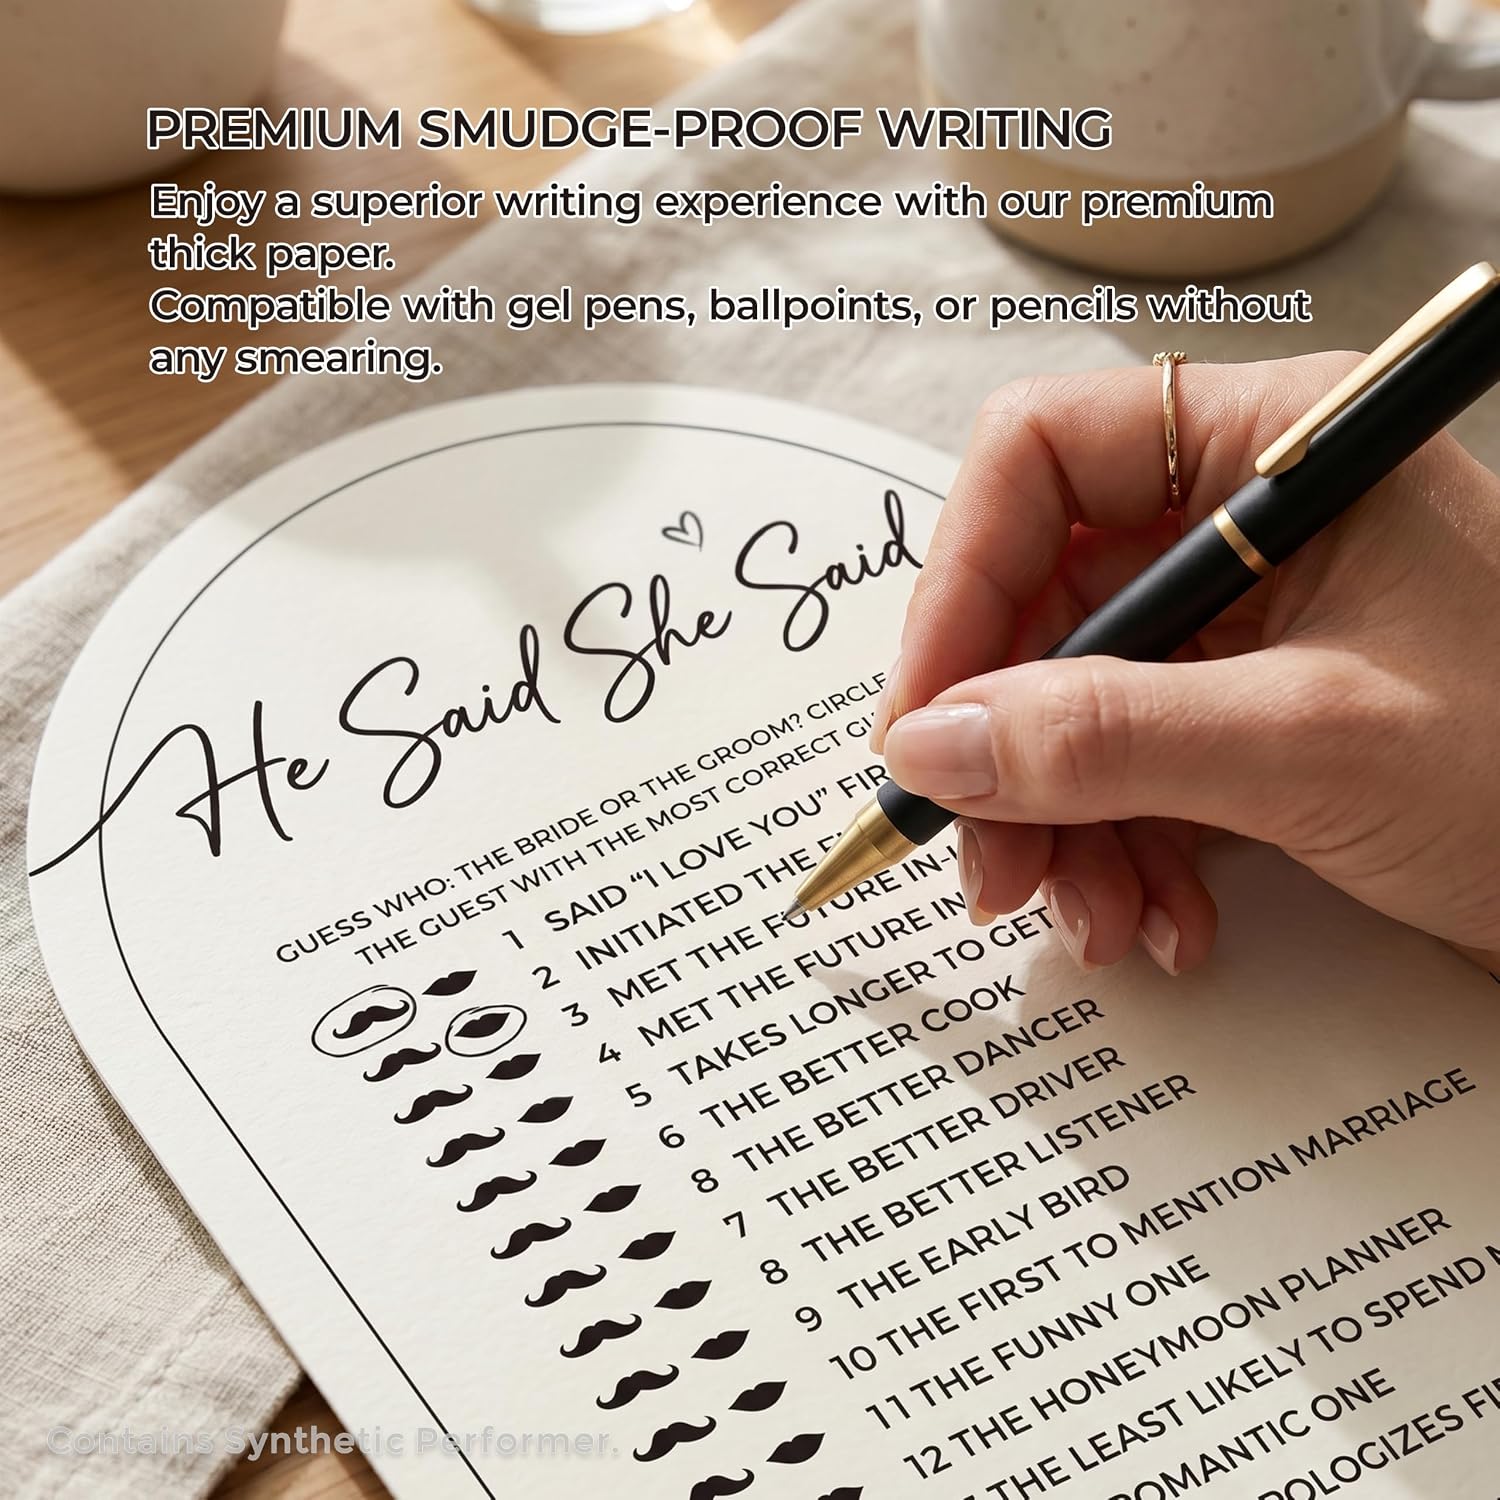 PREMIUM SMUDGE-PROOF WRITING
Enjoy a superior writing experience with our premium
thick paper.
Compatible with gel pens, ballpoints, or pencils without
any smearing.
He Said She Said
GUESS WHO: THE BRIDE OR THE GROOM? CIRCLE
THE GUEST WITH THE MOST CORRECT
1 SAID “I LOVE YOU”
2 INITIATED THE
3 MET THE FUTURE
4 MET THE FUTURE
5 TAKES LONGER TO GET
6 THE BETTER COOK
8 THE BETTER DANCER
7 THE BETTER DRIVER
8 THE BETTER LISTENER
9 THE EARLY BIRD
10 THE FIRST TO MENTION MARRIAGE
11 THE FUNNY ONE
12 THE HONEYMOON PLANNER
THE LEAST LIKELY TO SPEND
ROMANTIC ONE
Contains Synthetic Performer.